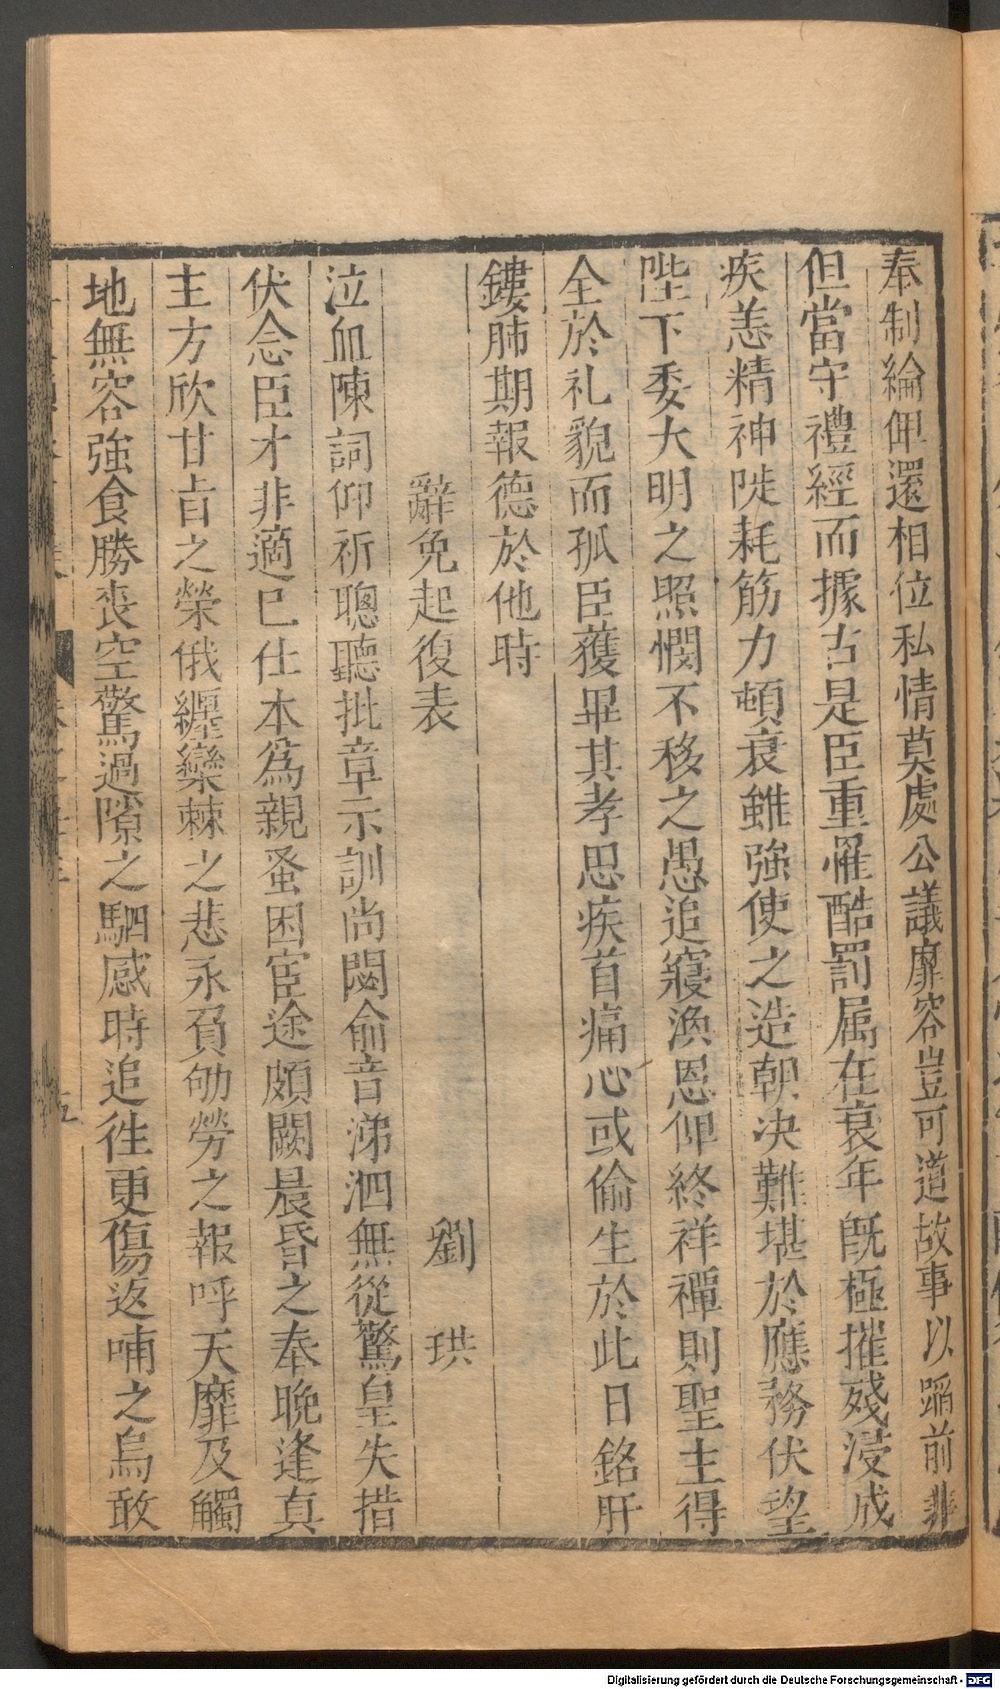 奉制綸俾還相位私情莫處公議靡容豈可遵故事以蹈前非
但當守禮經而據古是臣重罹酷罰属在衰年既極摧殘浸成
疾恙精神陡耗筋力頓衰雖強使之造朝决難堪於應務伏望
陛下委大明之照憫不移之愚追寢渙恩仰終祥禫則聖主得
全於礼貌而孤臣獲畢其孝思疾首痛心或偷生於此日銘肝
鏤肺期報德於他時
辭免起復表 劉 珙
泣血陳詞仰祈聰聽批章示訓尚閟俞音涕泗無從驚皇失措
伏念臣才非適巳仕本為親蚤困宦途頗闕晨昏之奉晚逢真
主方欣甘旨之榮俄纏欒棘之悲永負劬勞之報呼天靡及觸
地無容強食勝喪空驚過隙之駟感時追徃更傷返哺之烏敢
五
Digitalisierung gefördert durch die Deutsche Forschungsgemeinschaft - DFG